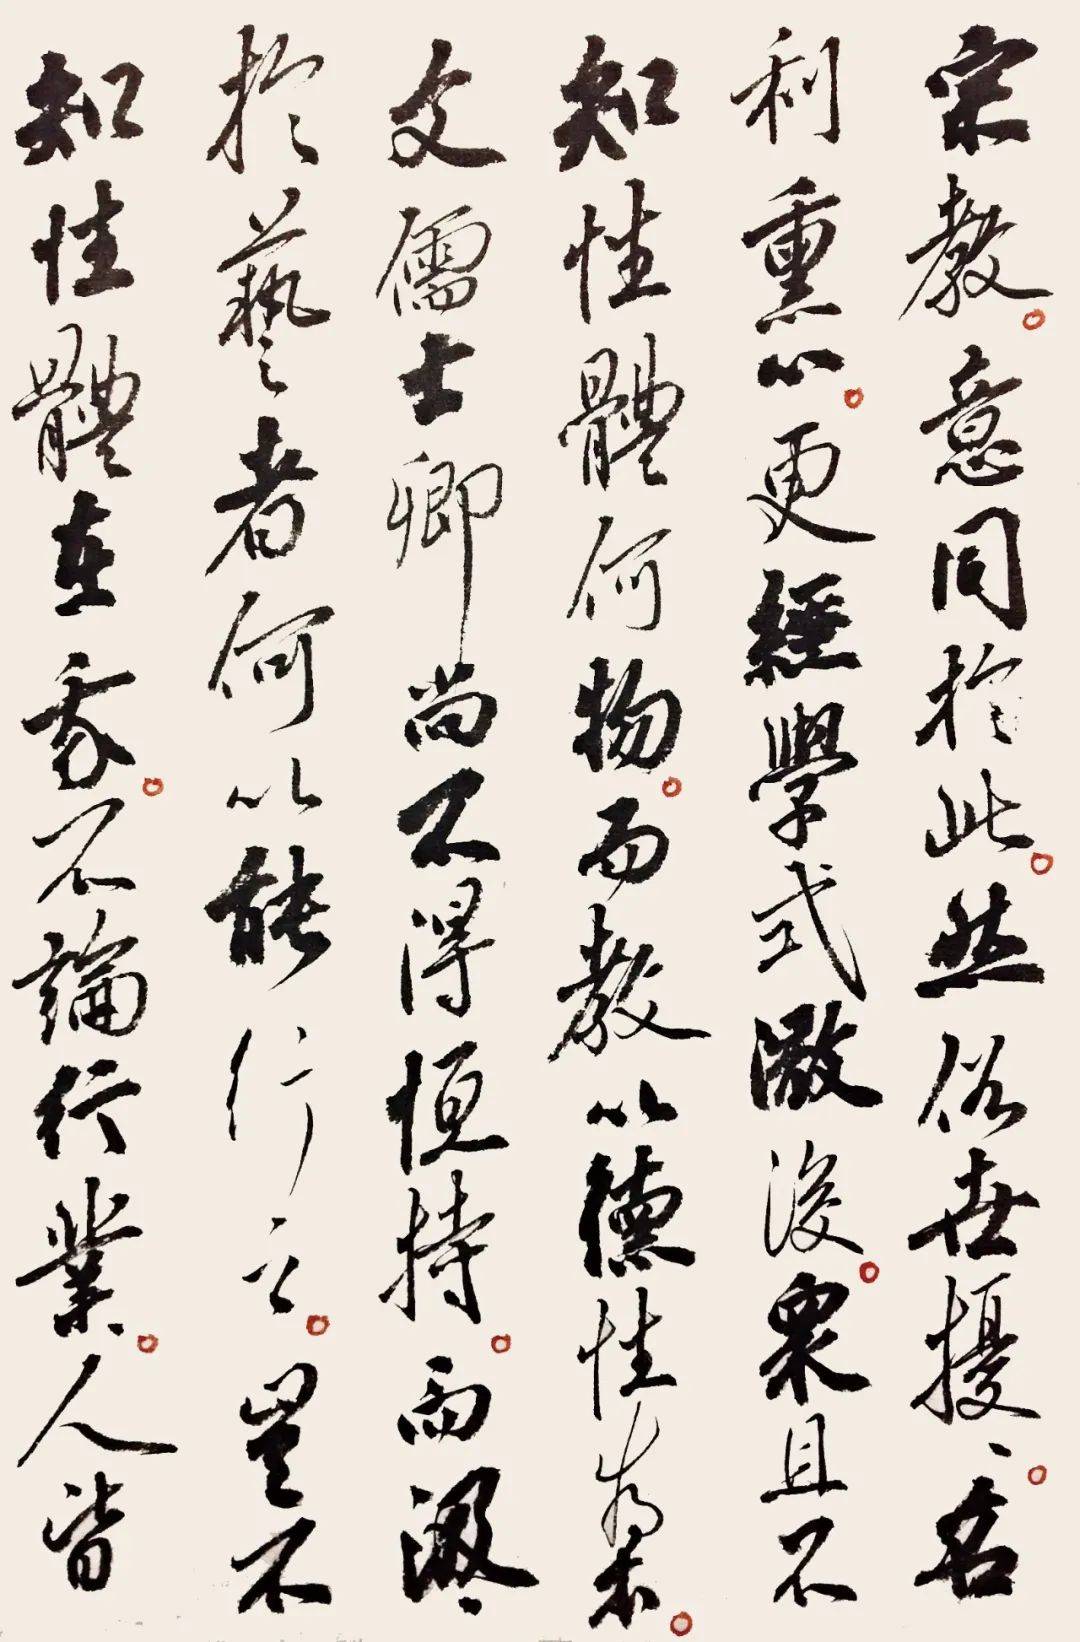 宗教。意同於此。然俗世擾々。名
利熏心。更經學式激後。衆且不
知性體何物。而教以德性為本。
文儒士卿尚不得恒持。而汲々
於藝者何以能行之。豈不
知性體在我。不論行業。人皆